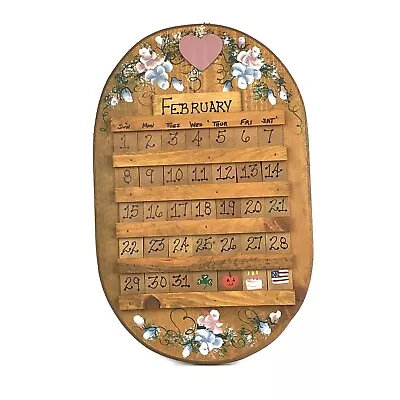 FEBRUARY
SUN MON TUEZ WED THUR FRI SAT
1 2 3 4 5 6 7
8 9 10 11 12 13 14
15 16 17 18 19 20 21
22 23 24 25 26 27 28
29 30 31